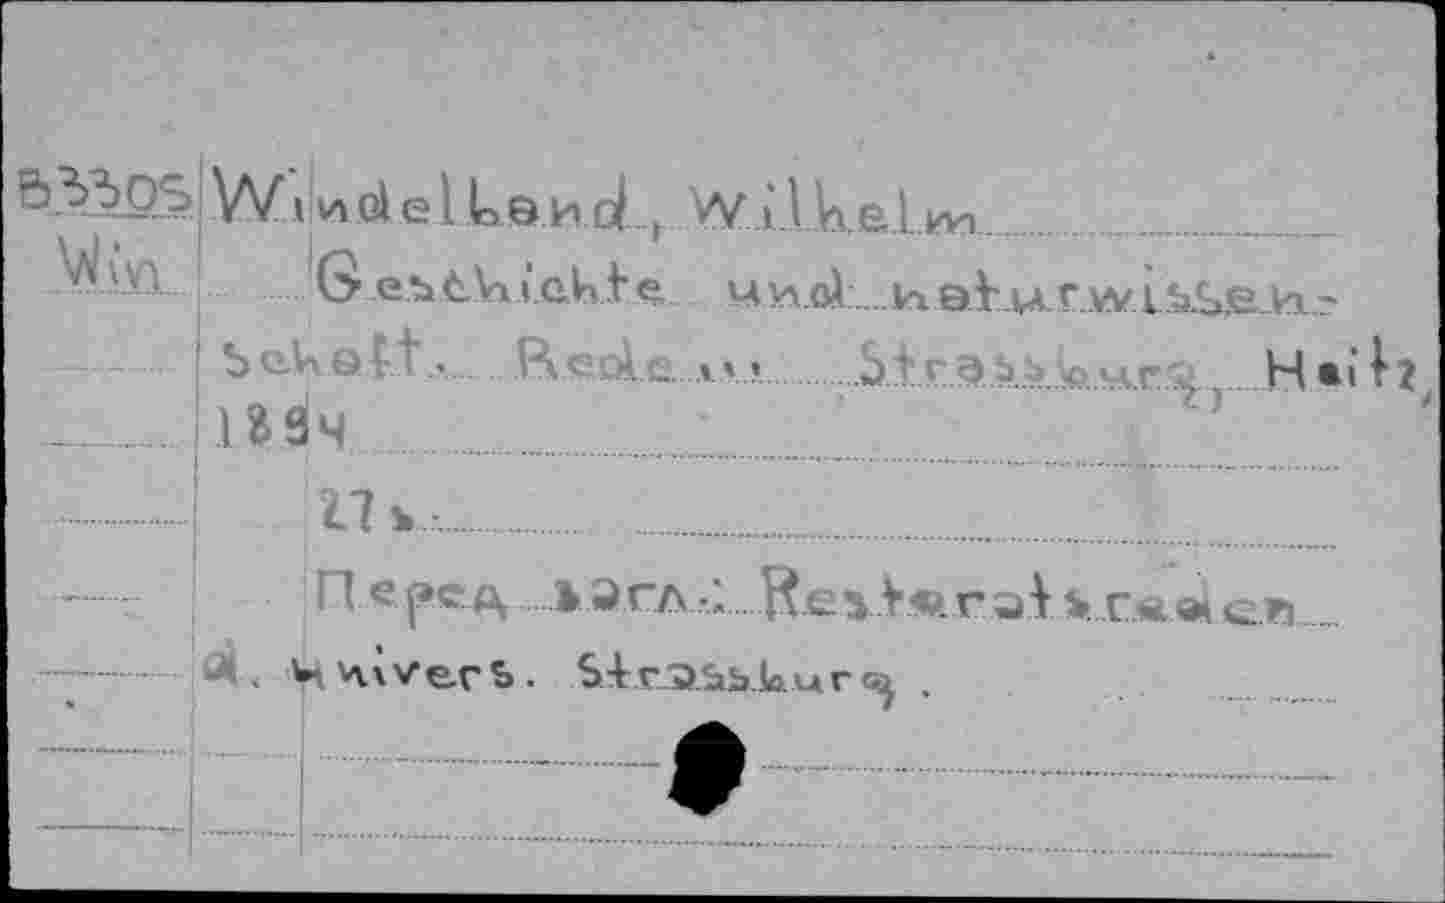 B3305 Windelband, Wilhelm
Win Geschichte und naturwissen-
schaft. Rede ... Strassburg, Heitz,
1894
27 s.
Перед загл.: Rektoratsreden
d. Univers. Strassburg.